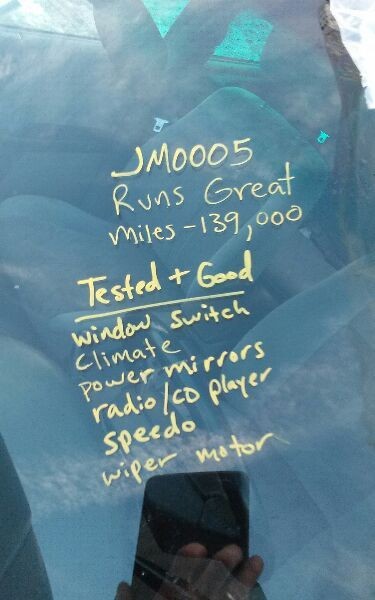 JM0005
Runs Great
Miles - 139,000
Tested + Good
window switch
Climate
power mirrors
radio/CD player
speedo
wiper motor